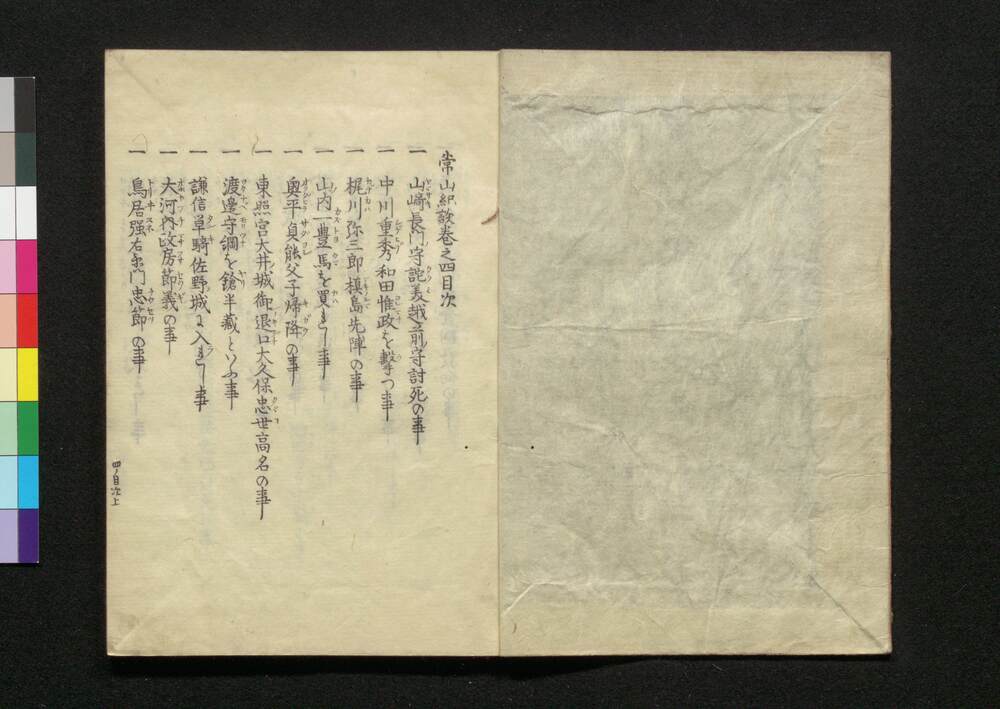 常山紀談巻之四目次
一 山崎長門守詑美越前守討死の事
一 中川重秀和田惟政を撃つ事
一 梶川弥三郎槙島先陣の事
一 山内一豊馬を買れし事
一 奥平貞能父子帰降の事
一 東照宮大井城御退口大久保忠世高名の事
一 渡邊守綱を鎗半蔵といふ事
一 謙信単騎佐野城に入れし事
一 大河内政房節義の事
一 鳥居强右衛門忠節の事
四ノ目次上